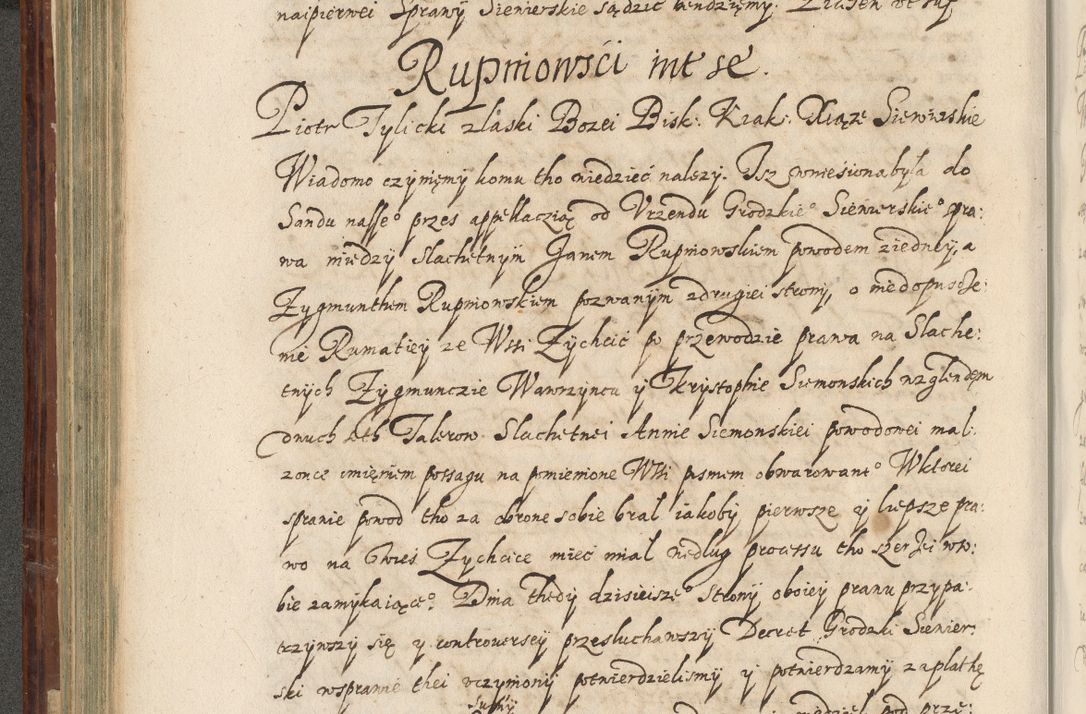 naipierwei Sprawÿ Siewierskie sądzić bendzięmy.
Rupniowsći int se.
Piotr Tylicki z łaski Bozei Bisk: Krak: Xiąże Siewierskie
Wiadomo czÿnięmÿ komu tho wiedzieć nalezy. Isz wniesiona była do
Sandu nasse° przes appellaczią od Vrzendu Grodzkie° Siewierskie° pra:
wa między Slachetnÿm Janem Rupniowskiem powodem ziedneÿ, a
Zygmunthem Rupniowskiem pozwanÿm zdrugiei stronÿ, o niedopuscze:
nie Rumatieÿ ze Wsi Zÿchcić po przewodzie prawa na Slache:
tnÿch Zygmunczie Wawrzyncu ÿ Krÿstophie Siemonskich wzglendem
dwuch seth Talerow Slachetnei Annie Siemonskiei powodowei mal:
zonce imięniem possagu na pomienione Wsi pismem obwarowane° Wktorei
sprawie powod tho za obronę sobie brał iakobÿ pierwsze ÿ liepsze pra:
wo na Gwieś Zychcice mieć miał według processu tho szerzei wso:
bie zamÿkaiące°. Dnia thedÿ dzisieisze° stronÿ oboieÿ prawu przypa:
trzÿwszÿ się ÿ controuerseÿ przesłuchawszÿ Decret Grodzki Siewier:
ski wsprawie thei vczÿnionÿ potwierdzieliśmÿ ÿ potwierdzamÿ zapłathę
summÿ